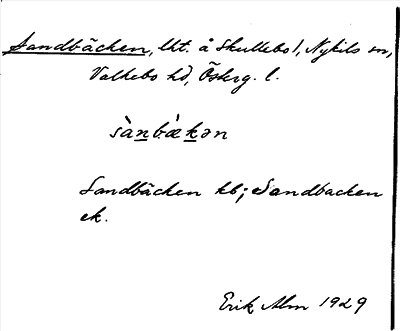 Sandbäcken, lht. å Skullebo 1, Nykils sn,
Valkebo hd, Österg. l.
sànbæ̀kən
Sandbäcken kb; Sandbacken
ek.
Erik Alm 1929